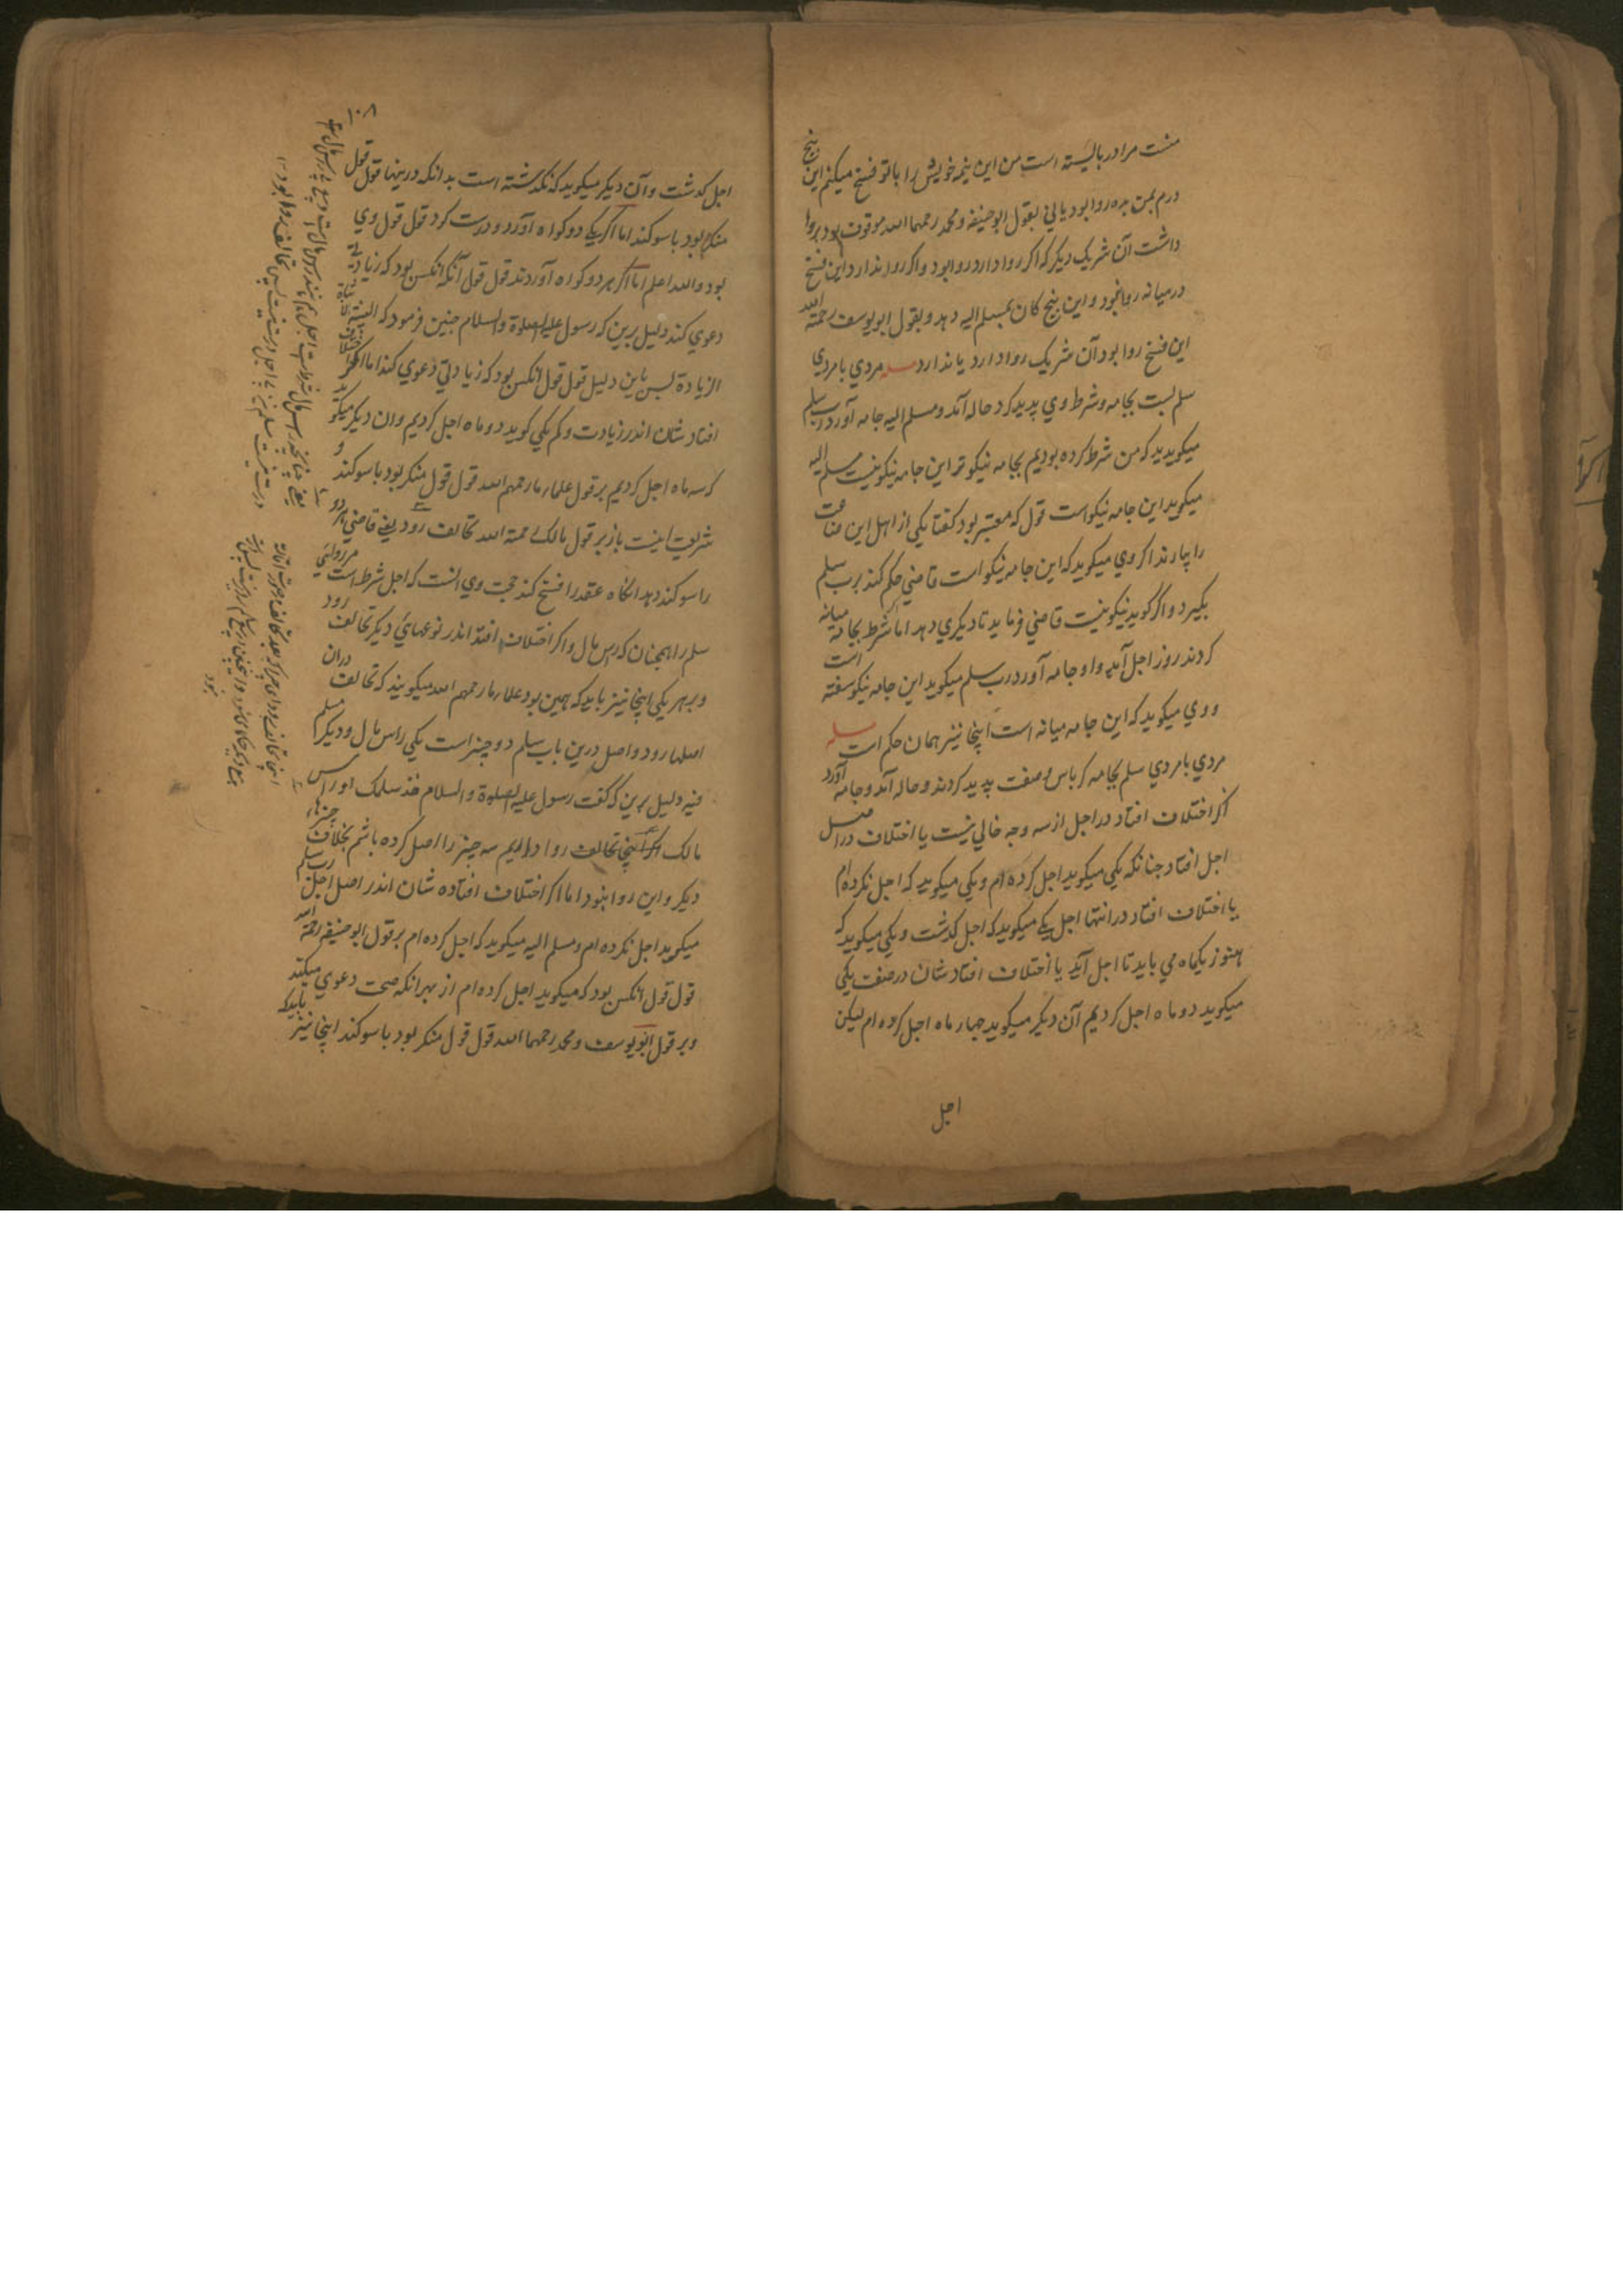 منست مرا در بایسته است من این نیمه خویش را با تو فسخ میکنم این پنج
درم بمن ده روا بود یا نی بقول ابوحنیفه و محمد رحمهما الله موقوف بود بروا
داشت آن شریک دیگر که اکر روا دارد روا بود و اکر روا ندارد این فسخ
در میانه روا نبود و این پنج کان بمسلم الیه دهد و بقول ابویوسف رحمه الله
این فسخ روا بود آن شریک روا دارد یا ندارد مسله مردي با مردي
سلم بست بجامه و شرط وي پدید کرد حاله آمد و مسلم الیه جامه آورد رب سلم
میکوید که من شرط کرده بودیم بجامه نیکوتر این جامه نیکو نیست مسلم الیه
میکوید این جامه نیکو است قول که معتبر بود کفتا یکی از اهل این صناعت
را بیارند اکر وي میکوید که این جامه نیکو است قاضي حکم کند بر رب سلم
بکیرد و اکر کوید نیکو نیست قاضي فرماید تا دیکري دهد اما شرط بجامه میانه
کردند روز اجل آمد و او جامه آورد رب سلم میکوید این جامه نیکو سفته است
و وي میکوید که این جامه میانه است اینجا نیز همان حکم است مسله
مردي با مردي سلم بجامه کرباس و صفت پدید کردند و حاله آمد و جامه آورد
اکر اختلاف افتاد در اجل از سه وجه خالي نیست یا اختلاف در اصل
اجل افتاد چنانکه یکي میکوید اجل کرده ام و یکي میکوید که اجل نکرده ام
یا اختلاف افتاد در انتها اجل یکے میکوید که اجل کذشت و یکي میکوید که
هنوز یکماه مي باید تا اجل آید یا اختلاف افتاد شان در صفت یکي
میکوید دو ماه اجل کردیم آن دیکر میکوید چهار ماه اجل کرده ام لیکن
اجل
۱۰۸
اجل کذشت و آن دیکر میکوید که نکذشته است بدانکه درینها قول قول
منکر بود با سوکند اما اکر یکے دو کواه آورد و درست کرد قول قول وي
بود والله اعلم اما اکر هر دو کواه آوردند قول قول آنکس بود که زیادتي
دعوي کند دلیل برین که رسول علیه الصلوة والسلام چنین فرمود که البینة
الزیادة پس باین دلیل قول قول آنکس بود که زیادتي دعوي کند اما اکر
افتاد شان اندر زیادت و کم یکي کوید دو ماه اجل کردیم و آن دیکر میکوید
که سه ماه اجل کردیم بر قول علماء ما رحمهم الله قول قول منکر بود با سوکند و
شریعت اینست باز بر قول مالک رحمة الله تحالف رود یعنے قاضي هر دو
را سوکند دهد آنکاه عقد را فسخ کند حجت وي آنست که اجل شرط است مر روائي
سلم را همچنان که راس مال و اکر اختلاف افتد اندر نوعهائي دیکر تحالف رود
و بهر یکي اینجا نیز باید که همین بود علماء ما رحمهم الله میکویند که تحالف در آن
اصلها رود و اصل درین باب سلم دو چیز است یکي راس مال و دیکر مسلم
فیه دلیل برین که کفت رسول علیه الصلوة والسلام خذ سلمک او راس
مالک اکر اینجا تحالف روا داریم سه چیز را اصل کرده باشم بخلاف چیزهاء
دیکر و این روا نبود اما اکر اختلاف افتاده شان اندر اصل اجل رب سلم
میکوید اجل نکرده ام و مسلم الیه میکوید که اجل کرده ام بر قول ابوحنیفه رحمة الله
قول قول آنکس بود که میکوید اجل کرده ام از بهر آنکه صحت دعوي میکند
و بر قول ابویوسف و محمد رحمهما الله قول قول منکر بود با سوکند اینجا نیز باید که